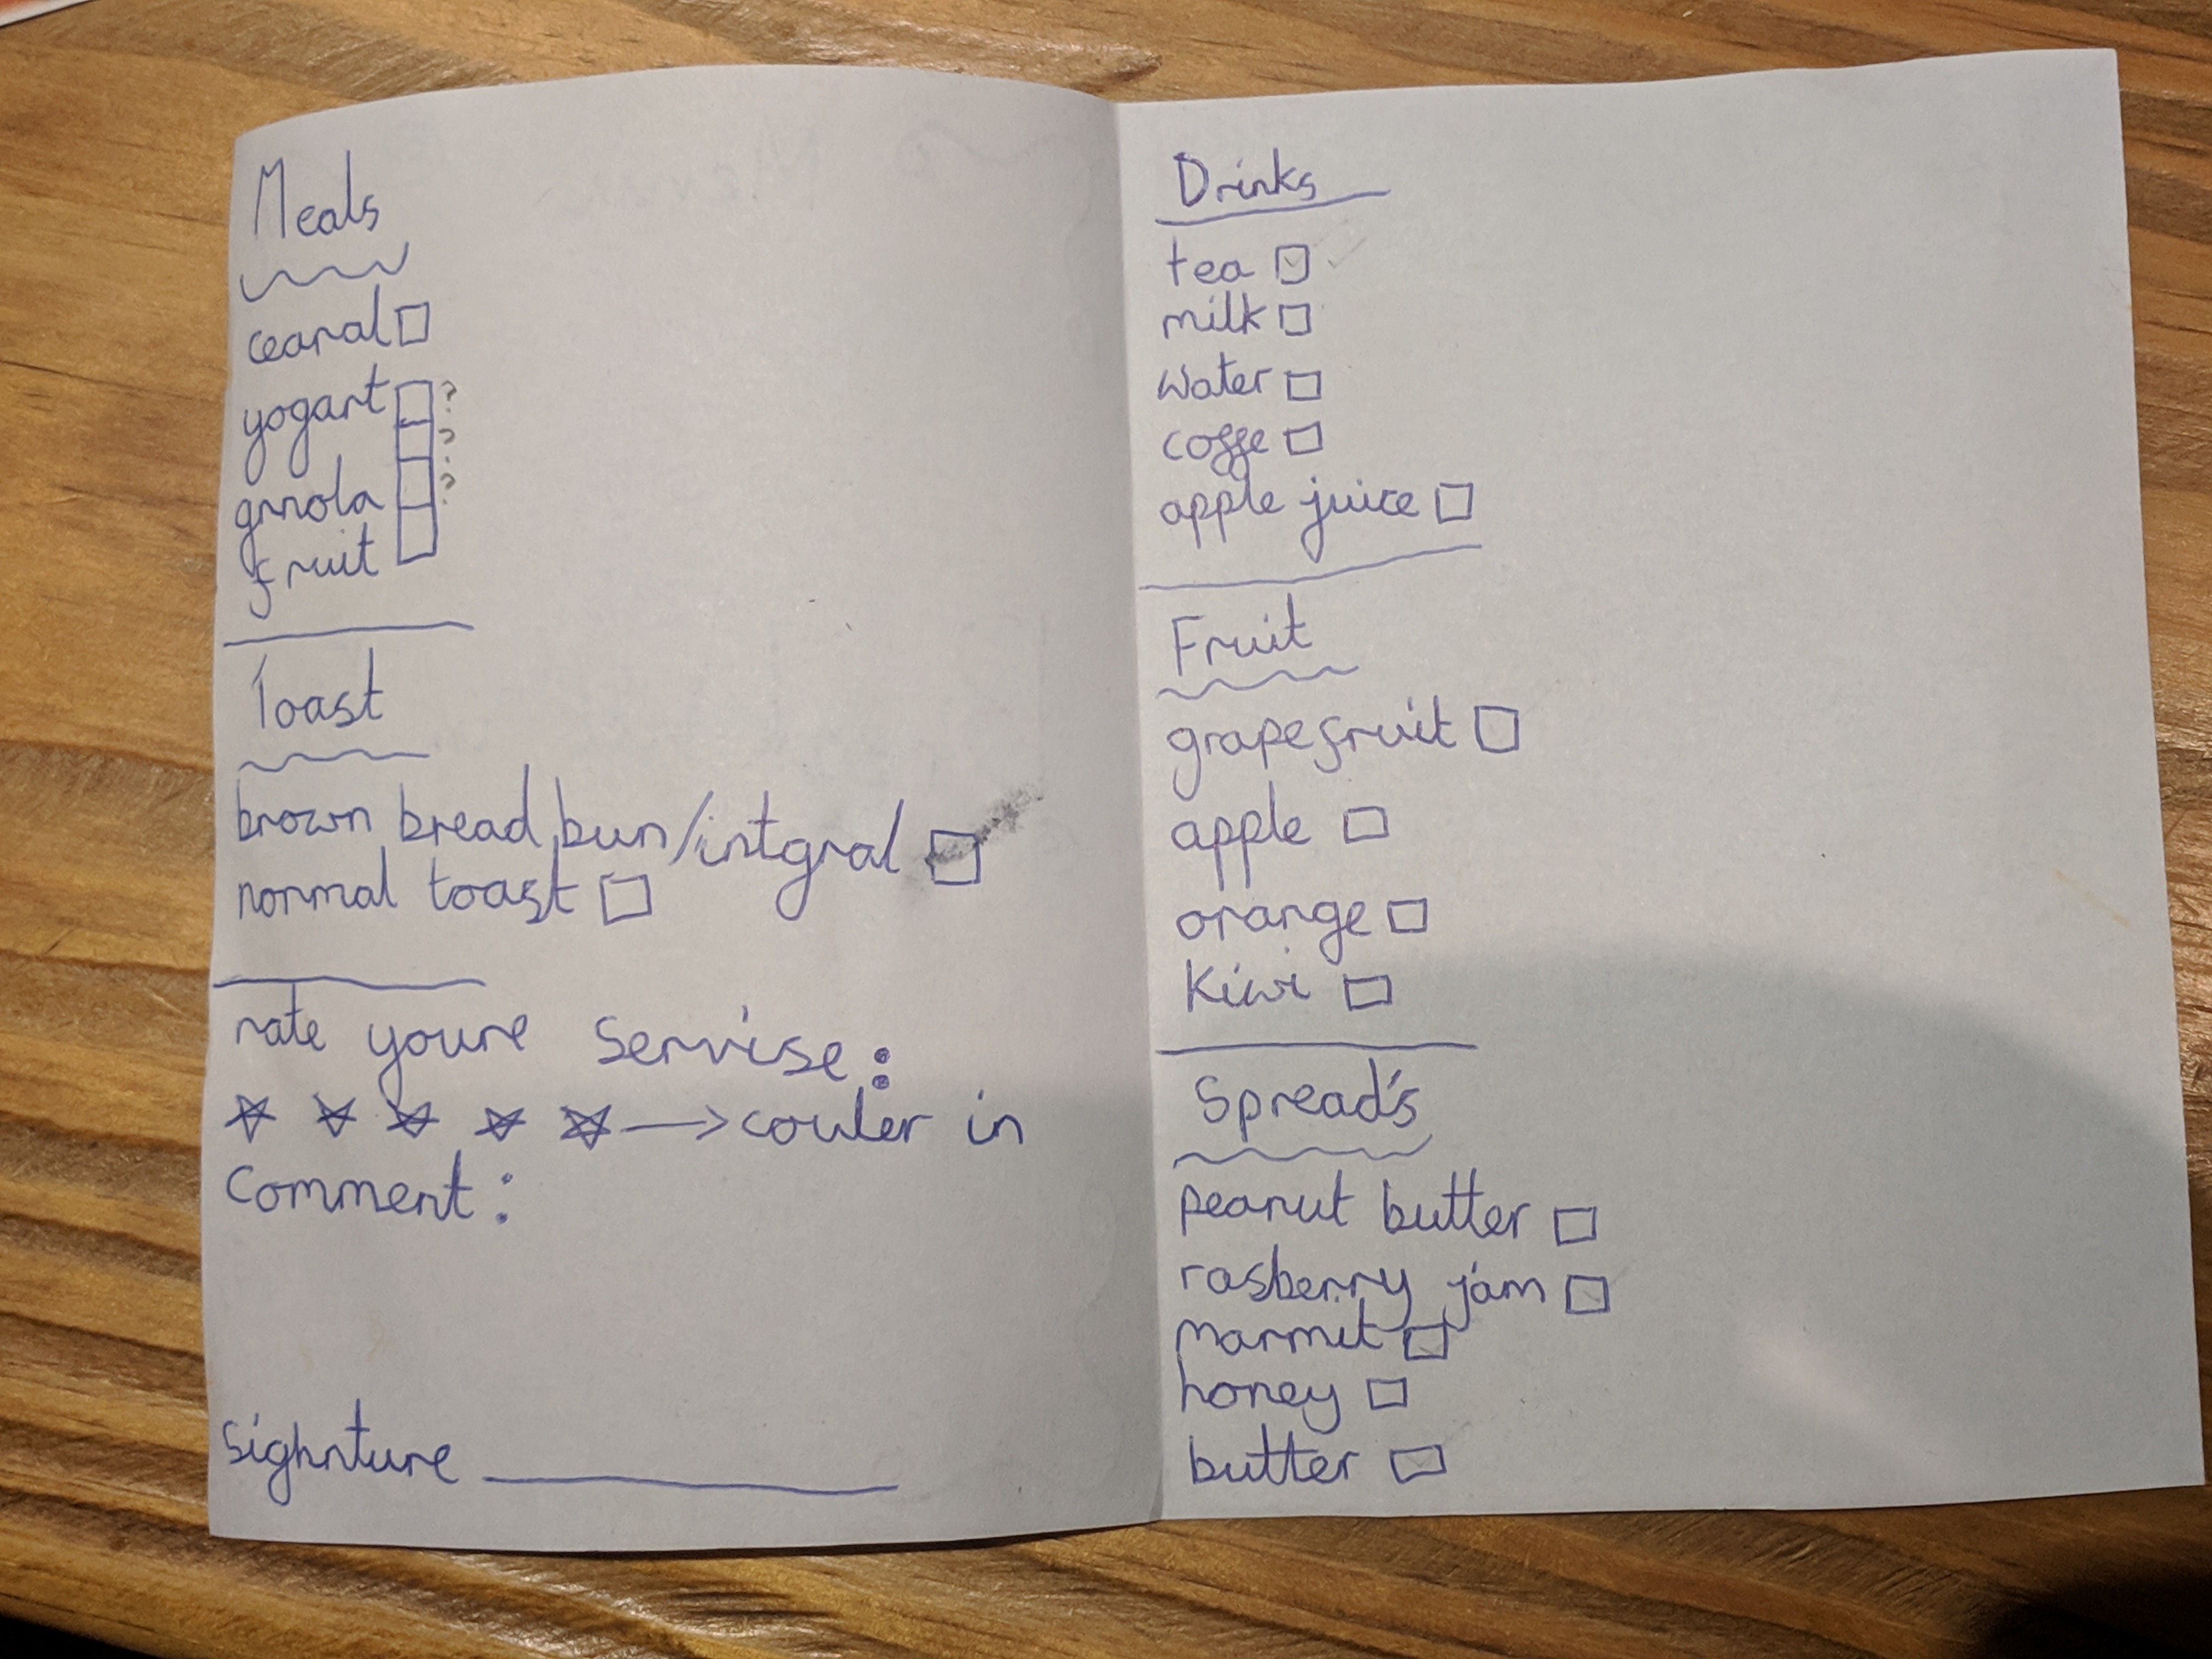 Meals
cearal
yogart ?
?
grnola ?
fruit
Toast
brown bread bun/intgral
normal toast
rate youre Servise:
couler in
Comment:
Sighnture
Drinks
tea ✓
milk
water
coffe
apple juice
Fruit
grapefruit
apple
orange
Kiwi
Spread's
peanut butter
rasberry jam
marmit
honey
butter